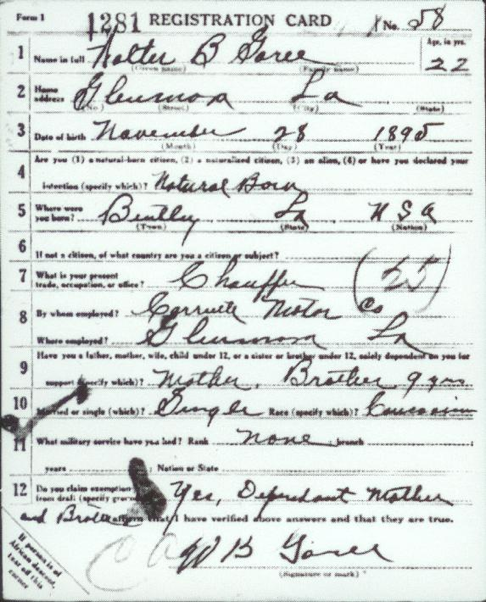 Form 1 1281 REGISTRATION CARD No. 58
1 Name in full Walter B Goree Age, in yrs. 22
(Given name) (Family name)
2 Home address Glenmora La
(No.) (Street) (City) (State)
3 Date of birth November 28 1895
(Month) (Day) (Year)
4 Are you (1) a natural-born citizen, (2) a naturalized citizen, (3) an alien, (4) or have you declared your
intention (specify which)? Natural Born
5 Where were you born? Bentley La USA
(Town) (State) (Nation)
6 If not a citizen, of what country are you a citizen or subject?
7 What is your present trade, occupation, or office? Chauffer (25)
8 By whom employed? Motor Co
Where employed? Glenmora La
9 Have you a father, mother, wife, child under 12, or a sister or brother under 12, solely dependent on you for
support (specify which)? Mother, Brother 9 yrs
10 Married or single (which)? Single Race (specify which)? Caucasian
11 What military service have you had? Rank none branch
years ; Nation or State
12 Do you claim exemption from draft (specify grounds)? Yes, Dependant Mother
and Brother affirm that I have verified above answers and that they are true.
W B Goree
(Signature or mark)
If person is of
African descent,
tear off this
corner